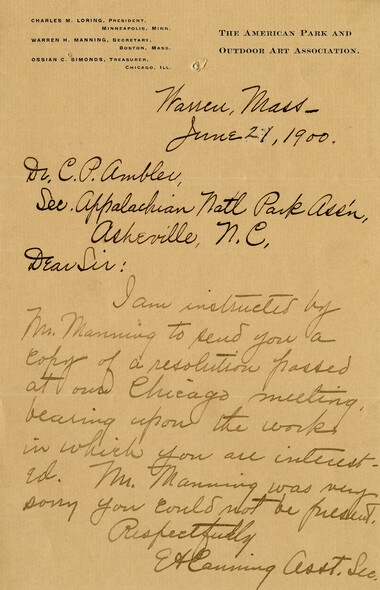 CHARLES M. LORING, PRESIDENT,
MINNEAPOLIS, MINN.
WARREN H. MANNING, SECRETARY,
BOSTON, MASS.
OSSIAN C. SIMONDS, TREASURER,
CHICAGO, ILL.
THE AMERICAN PARK AND
OUTDOOR ART ASSOCIATION.
Warren, Mass-
June 21, 1900.
Dr. C. P. Ambler,
Sec. Appalachian Nat'l Park Ass'n,
Asheville, N. C,
Dear Sir:
I am instructed by
Mr. Manning to send you a
copy of a resolution passed
at our Chicago meeting,
bearing upon the work
in which you are interest-
ed. Mr. Manning was very
sorry you could not be present.
Respectfully
E H Canning Asst. Sec.